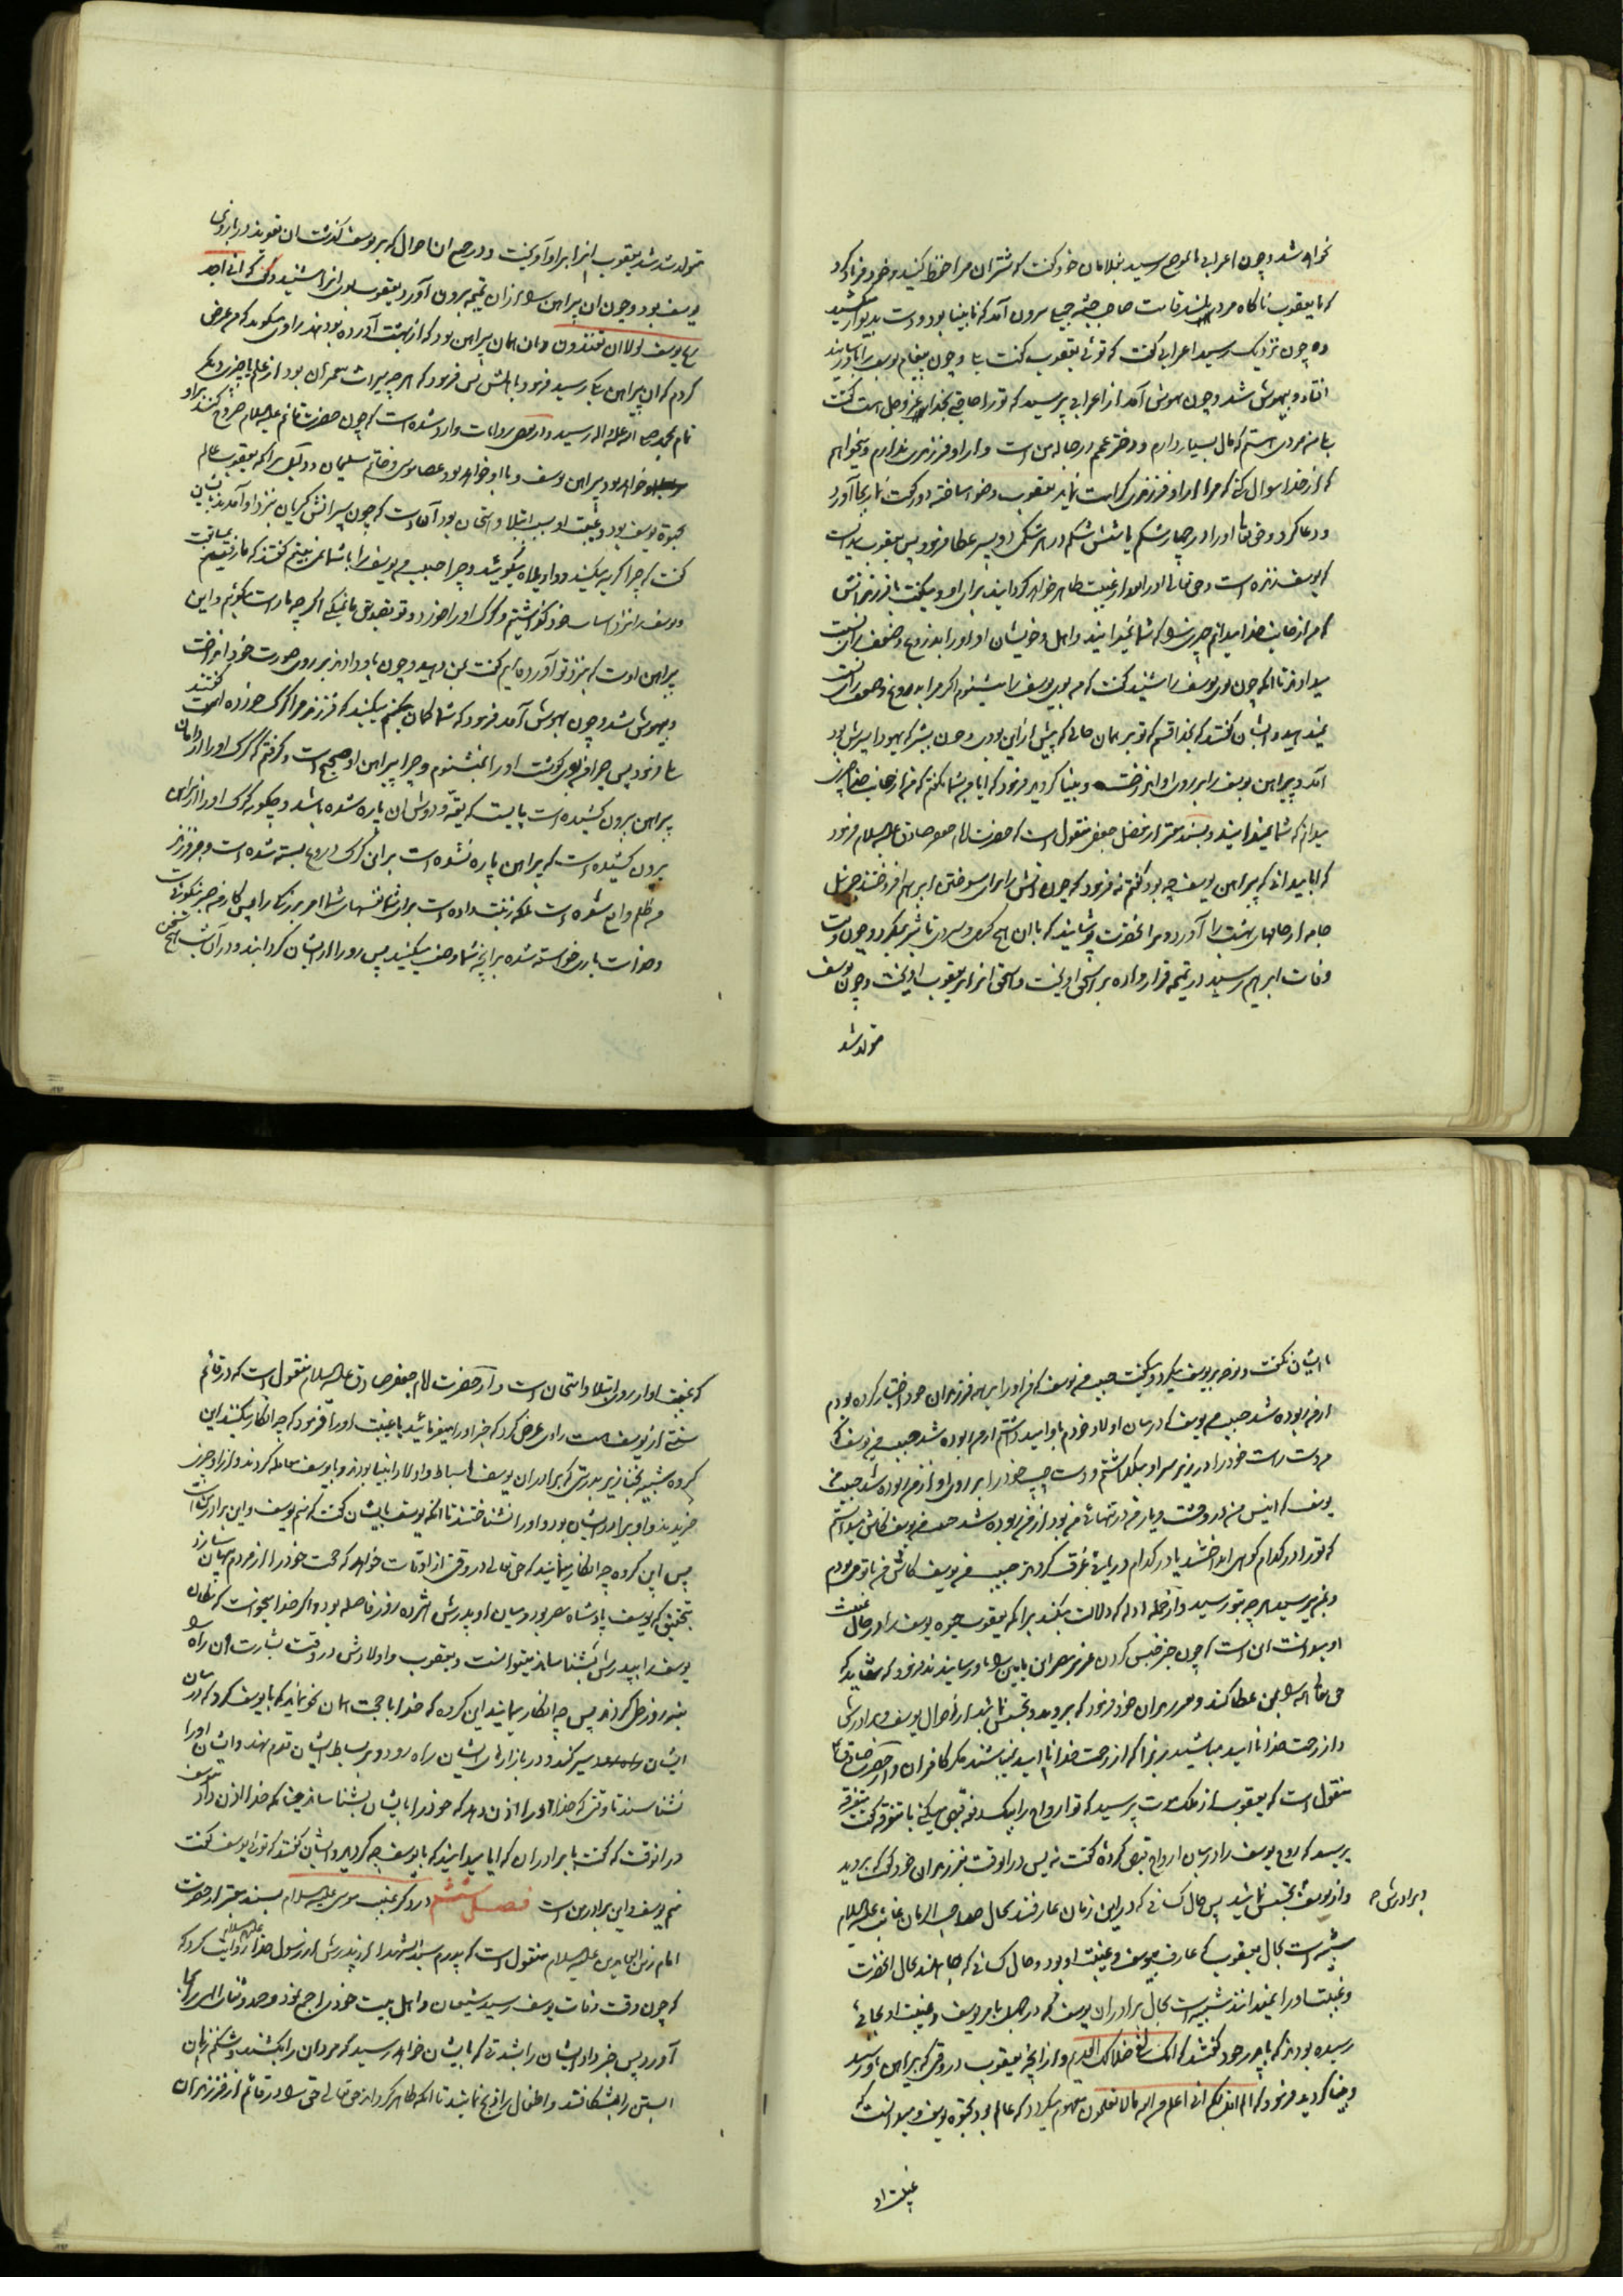 نخواهد شد و چون اعرابی بآن موضع رسید بغلامان خود گفت که شتران مرا حفظ کنید و خود فریاد کرد
که یا یعقوب ناگاه مردی بلند قامت صاحب جثه بیرون آمد که نابینا بود و دست بدیوار میکشید
و چون نزدیک رسید اعرابی گفت که توئی یعقوب گفت بلی و چون پیغام یوسف را باو رسانید
افتاد و بیهوش شد و چون بهوش آمد از اعرابی پرسید که تو را حاجتی بخدای عز و جل هست گفت
بلی من مردی هستم که مال بسیار دارم و دختر عمم در حباله من است و از او فرزندی ندارم و میخواهم
که از خدا سوال کنی که مرا از او فرزندی کرامت نماید یعقوب وضو ساخته دو رکعت نماز بجا آورد
و دعا کرد و حق تعالی او را در چهار شکم یا شش شکم در هر شکمی دو پسر عطا فرمود پس یعقوب میدانست
که یوسف زنده است و حق تعالی او را بعد از غیبت ظاهر خواهد گردانید برای او و میگفت با فرزندانش
که من از جانب خدا میدانم چیزی را که شما نمیدانید و اهل و خویشان او او را بدروغ و ضعف رای نسبت
میدادند تا آنکه چون بوی یوسف را شنید گفت که من بوی یوسف را میشنوم اگر مرا بدروغ و ضعف رای نسبت
نمیدهید و ایشان گفتند که بخدا قسم که تو بر همان حالی که پیش از این بودی و چون بشیر که یهودا پسرش بود
آمد و پیراهن یوسف را بر روی او انداخت و بینا گردید فرمود که آیا من بشما نگفتم که من از جانب خدا چیزی
میدانم که شما نمیدانید و بسند معتبر از مفضل جعفی منقول است که حضرت امام جعفر صادق علیه السلام فرمود
که آیا میدانی که پیراهن یوسف چه بود گفتم نه فرمود که چون آتش را برای سوختن ابراهیم افروختند جبرئیل
جامه از جامهای بهشت را آورد و بر آنحضرت پوشانید که با آن هیچ گرمی و سردی تاثیر نمیکرد و چون وقت
وفات ابراهیم رسید در تمیمه قرار داده بر اسحق آویخت و اسحق آنرا بر یعقوب آویخت و چون یوسف
متولد شد
متولد شد شد یعقوب آنرا بر او آویخت و در جمیع آن احوال که بر یوسف گذشت آن تعویذ در بازوی
یوسف بود و چون آن پیراهن را از آن تمیمه بیرون آورد یعقوب بوی آنرا شنید و گفت که انی لاجد
ریح یوسف لولا ان تفندون و آن همان پیراهن بود که از بهشت آورده بودند راوی میگوید که من عرض
کردم که آن پیراهن بکه رسید فرمود باهلش پس فرمود که هر چه میراث پیغمبران بود از علم یا چیز دیگر
تمام بمحمد صلی الله علیه و اله رسید و در بعضی روایات وارد شده است که چون حضرت قائم علیه السلام خروج کند بر او
خواهد بود پیراهن یوسف و با او خواهد بود عصای موسی و خاتم سلیمان و دلیل بر آنکه یعقوب عالم
بحیوة یوسف بود و غیبت او بسبب ابتلا و امتحان بود آنست که چون پسرانش گریان بنزد او آمدند بایشان
گفت که چرا گریه میکنید و واویلاه میگوئید و چرا حبیب من یوسف را با شما نمی بینم گفتند که ما رفتیم بمسابقت
و یوسف را نزد اسباب خود گذاشتیم و گرگ او را خورد و تو تصدیق ما نمیکنی اگر چه ما راست میگوئیم و این
پیراهن اوست که بنزد تو آورده ایم گفت بمن دهید و چون باو دادند بر روی صورت خود انداخت
و بیهوش شد و چون بهوش آمد فرمود که شما گمان میکنید که فرزند مرا گرگ خورده است گفتند
بلی فرمود پس چرا من بوی گوشت او را نمیشنوم و چرا پیراهن او صحیح است و گرفتم که گرگ او را از دامان
پیراهن بیرون کشیده است بایست که یقه و دوش آن پاره شده باشد و چگونه گرگ او را از پیراهن
بیرون کشیده است که پیراهن پاره نشده است بر این گرگ دروغ بسته شده است و فرزند
من ظلم واقع شده است بلکه زینت داده است برای شما نفسهای شما امر بزرگی را پس کار من صبر نیکوست
و خداست یاری خواسته شده بر آنچه شما وصف میکنید پس رو را از ایشان گردانید و در آن شب هیچ سخن
با ایشان نگفت و نوحه بر یوسف میکرد و میگفت حبیب من یوسف که من او را بر همه فرزندان خود اختیار کرده بودم
از من ربوده شد حبیب من یوسف که در میان اولاد خودم باو امید داشتم از من ربوده شد حبیب من یوسف که
من دست راست خود را در زیر سر او میگذاشتم و دست چپ خود را بر روی او از من ربوده شد حبیب من
یوسف که انیس من در وحشت و یار من در تنهائی من بود از من ربوده شد حبیب من یوسف کاش میدانستم
که تو را در کدام کوهها انداختند یا در کدام دریا غرق کردند حبیب من یوسف کاش من با تو میبودم
و بمن میرسید هر چه بتو رسید و از جمله ادله که دلالت میکند بر آنکه یعقوب حیوة یوسف را در حال غیبت
او میدانست این است که چون خبر حبس کردن عزیز مصر ابن یامین را باو رسانیدند فرمود که شاید که
حق تعالی همه را بمن عطا کند و بپسران خود فرمود که بروید و تجسس نمائید از احوال یوسف و برادرش
و از رحمت خدا ناامید مباشید زیرا که از رحمت خدا ناامید نمیباشند مگر کافران و از حضرت صادق ع
منقول است که یعقوب از ملک موت پرسید که تو ارواح را بیکدفعه قبض میکنی یا متفرق گفت متفرق
پرسید که روح یوسف را در میان ارواح قبض کردهٔ گفت نه پس در آنوقت بفرزندان خود گفت که بروید
و از یوسف و برادرش تجسس نمائید پس حال کسانی که در این زمان عارفند بحال صاحب الزمان غایب علیه السلام
شبیه است بحال یعقوب که عارف بیوسف و غیبت او بود و حال کسانی که جاهلند بحال آنحضرت
و غیبت او را نمیدانند شبیه است بحال برادران یوسف که در جهل بامر یوسف و غیبت او بجائی
رسیده بودند که بپدر خود گفتند که انک لفی ضلالک القدیم و از آنچه یعقوب در وقتی که پیراهن باو رسید
و بینا گردید فرمود که الم اقل لکم انی اعلم من الله ما لا تعلمون مفهوم میگردد که عالم بود بحیوة یوسف و میدانست که
غیبت او
که غیبت او از روی ابتلا و امتحان است و از حضرت امام جعفر صادق علیه السلام منقول است که در قائم
سنتی از یوسف هست راوی عرض کرد که خبر او را میفرمائید یا غیبت او را فرمود که چه انکار میکنند این
گروه شبیه بخنازیر بدرستی که برادران یوسف اسباط و اولاد انبیا بودند و با یوسف معامله کردند و از او چیزی
خریدند و او برادر ایشان بود و او را نشناختند تا آنکه یوسف بایشان گفت که منم یوسف و این برادر من است
پس این گروه چه انکار مینمایند که حق تعالی در وقتی از اوقات خواهد که حجت خود را از مردم پنهان سازد
بتحقیق که یوسف پادشاه مصر بود و میان او و پدرش هژده روز فاصله بود و اگر خدا میخواست که مکان
یوسف را بپدرش بشناساند میتوانست و یعقوب و اولادش در وقت بشارت آن راه را
بنه روز طی کردند پس چه انکار مینمایند این گروه که خدا با حجت ایمان کند آنچه با یوسف کرد که در میان
ایشان سیر کند و در بازارهای ایشان راه رود و بر بساط ایشان قدم نهد و ایشان او را
نشناسند تا وقتی که خدا او را اذن دهد که خود را بایشان بشناساند چنانکه خدا اذن داد یوسف
در آنوقت که گفت با برادران که آیا میدانید که با یوسف چه کردید و ایشان گفتند که توئی یوسف گفت
منم یوسف و این برادر من است فصل ششم در ذکر غیبت موسی علیه السلام بسند معتبر از حضرت
امام زین العابدین علیه السلام منقول است که پدرم سید الشهدا از پدرش از رسول خدا علیهم السلام روایت کرد که
که چون وقت وفات یوسف رسید شیعیان و اهل بیت خود را جمع نمود و حمد و ثنای الهی را بجا
آورد پس خبر داد ایشان را بشدتی که بایشان خواهد رسید که مردان را بکشند و شکم زنان
آبستن را بشکافند و اطفال را ذبح نمایند تا آنکه ظاهر گرداند حق تعالی حق را در قائم از فرزندان